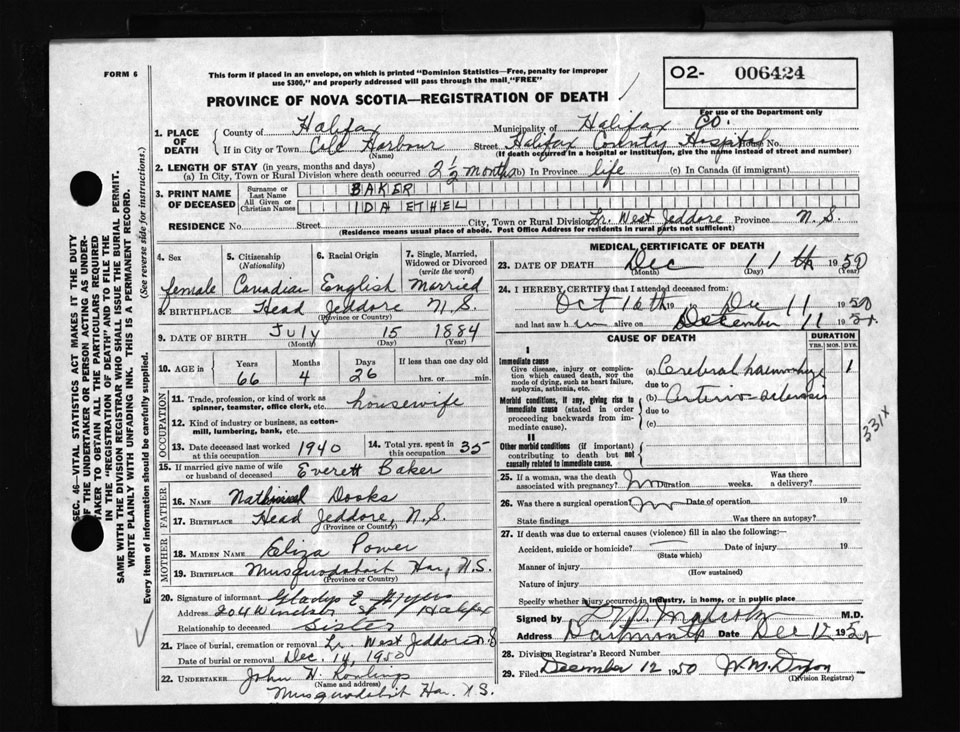 FORM 6
This form if placed in an envelope, on which is printed "Dominion Statistics—Free, penalty for improper
use $300," and properly addressed will pass through the mail, "FREE"
O2- 006424
For use of the Department only
PROVINCE OF NOVA SCOTIA—REGISTRATION OF DEATH
1. PLACE OF DEATH
County of Halifax Municipality of Halifax Co.
If in City or Town Cole Harbour Street Halifax County Hospital House No.
(Name) (If death occurred in a hospital or institution, give the name instead of street and number)
2. LENGTH OF STAY (in years, months and days)
(a) In City, Town or Rural Division where death occurred 2 1/2 months (b) In Province life (c) In Canada (if immigrant)
3. PRINT NAME OF DECEASED
Surname or Last Name BAKER
All Given or Christian Names IDA ETHEL
RESIDENCE No. Street City, Town or Rural Division Lr. West Jeddore Province N.S.
(Residence means usual place of abode. Post Office Address for residents in rural parts not sufficient)
4. Sex female
5. Citizenship (Nationality) Canadian
6. Racial Origin English
7. Single, Married, Widowed or Divorced (write the word) Married
8. BIRTHPLACE Head Jeddore N.S.
(Province or Country)
9. DATE OF BIRTH July 15 1884
(Month) (Day) (Year)
10. AGE in Years 66 Months 4 Days 26 If less than one day old hrs. or min.
OCCUPATION
11. Trade, profession, or kind of work as
spinner, teamster, office clerk, etc. housewife
12. Kind of industry or business, as cotton-
mill, lumbering, bank, etc.
13. Date deceased last worked at this occupation 1940 14. Total yrs. spent in this occupation 35
15. If married give name of wife
or husband of deceased Everett Baker
FATHER
16. NAME Nathinieal Dooks
17. BIRTHPLACE Head Jeddore, N.S.
(Province or Country)
MOTHER
18. MAIDEN NAME Eliza Power
19. BIRTHPLACE Musquodoboit Har, N.S.
(Province or Country)
20. Signature of informant Gladys E
Address 204 St Halifax
Relationship to deceased Sister
21. Place of burial, cremation or removal Lr. West Jeddore N.S
Date of burial or removal Dec. 14, 1950
22. UNDERTAKER John N. Rowlings
(Name and address)
Musquodoboit Har. N.S.
MEDICAL CERTIFICATE OF DEATH
23. DATE OF DEATH Dec 11th 1950
(Month) (Day) (Year)
24. I HEREBY CERTIFY that I attended deceased from:
Oct 16th 19 to Dec 11 1950
and last saw h alive on December 11 19
CAUSE OF DEATH
DURATION
YRS. MOS. DYS.
I
Immediate cause
Give disease, injury or complica-
tion which caused death, not the
mode of dying, such as heart failure,
asphyxia, asthenia, etc.
(a) Cerebral haemorrhage 1
due to
Morbid conditions, if any, giving rise to
immediate cause (stated in order
proceeding backwards from im-
mediate cause).
(b) Arterio-sclerosis
due to
(c)
331X
II
Other morbid conditions (if important)
contributing to death but not
causally related to immediate cause.
25. If a woman, was the death
associated with pregnancy? no Duration weeks. Was there a delivery?
26. Was there a surgical operation? no Date of operation 19
State findings Was there an autopsy?
27. If death was due to external causes (violence) fill in also the following:—
Accident, suicide or homicide? Date of injury 19
(State which)
Manner of injury
(How sustained)
Nature of injury
Specify whether injury occurred in industry, in home, or in public place
Signed by M.D.
Address Dartmouth Date Dec 12 19
28. Division Registrar's Record Number
29. Filed December 12 1950 W.M. Dixon
(Division Registrar)
SEC. 46—VITAL STATISTICS ACT MAKES IT THE DUTY
OF THE UNDERTAKER OR PERSON ACTING AS UNDER-
TAKER TO OBTAIN ALL THE PARTICULARS REQUIRED
IN THE "REGISTRATION OF DEATH" AND TO FILE THE
SAME WITH THE DIVISION REGISTRAR WHO SHALL ISSUE THE BURIAL PERMIT.
WRITE PLAINLY WITH UNFADING INK. THIS IS A PERMANENT RECORD.
Every item of information should be carefully supplied. (See reverse side for instructions.)